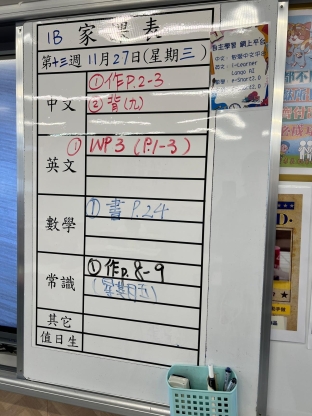 1B 家課表
第十三週 11月27日(星期三)
中文
①作P.2-3
② 背(九)
英文
① WP3 (P.1-3)
數學
① 書 P.24
常識
①作P.8-9
其它
值日生
自主學習 網上平台